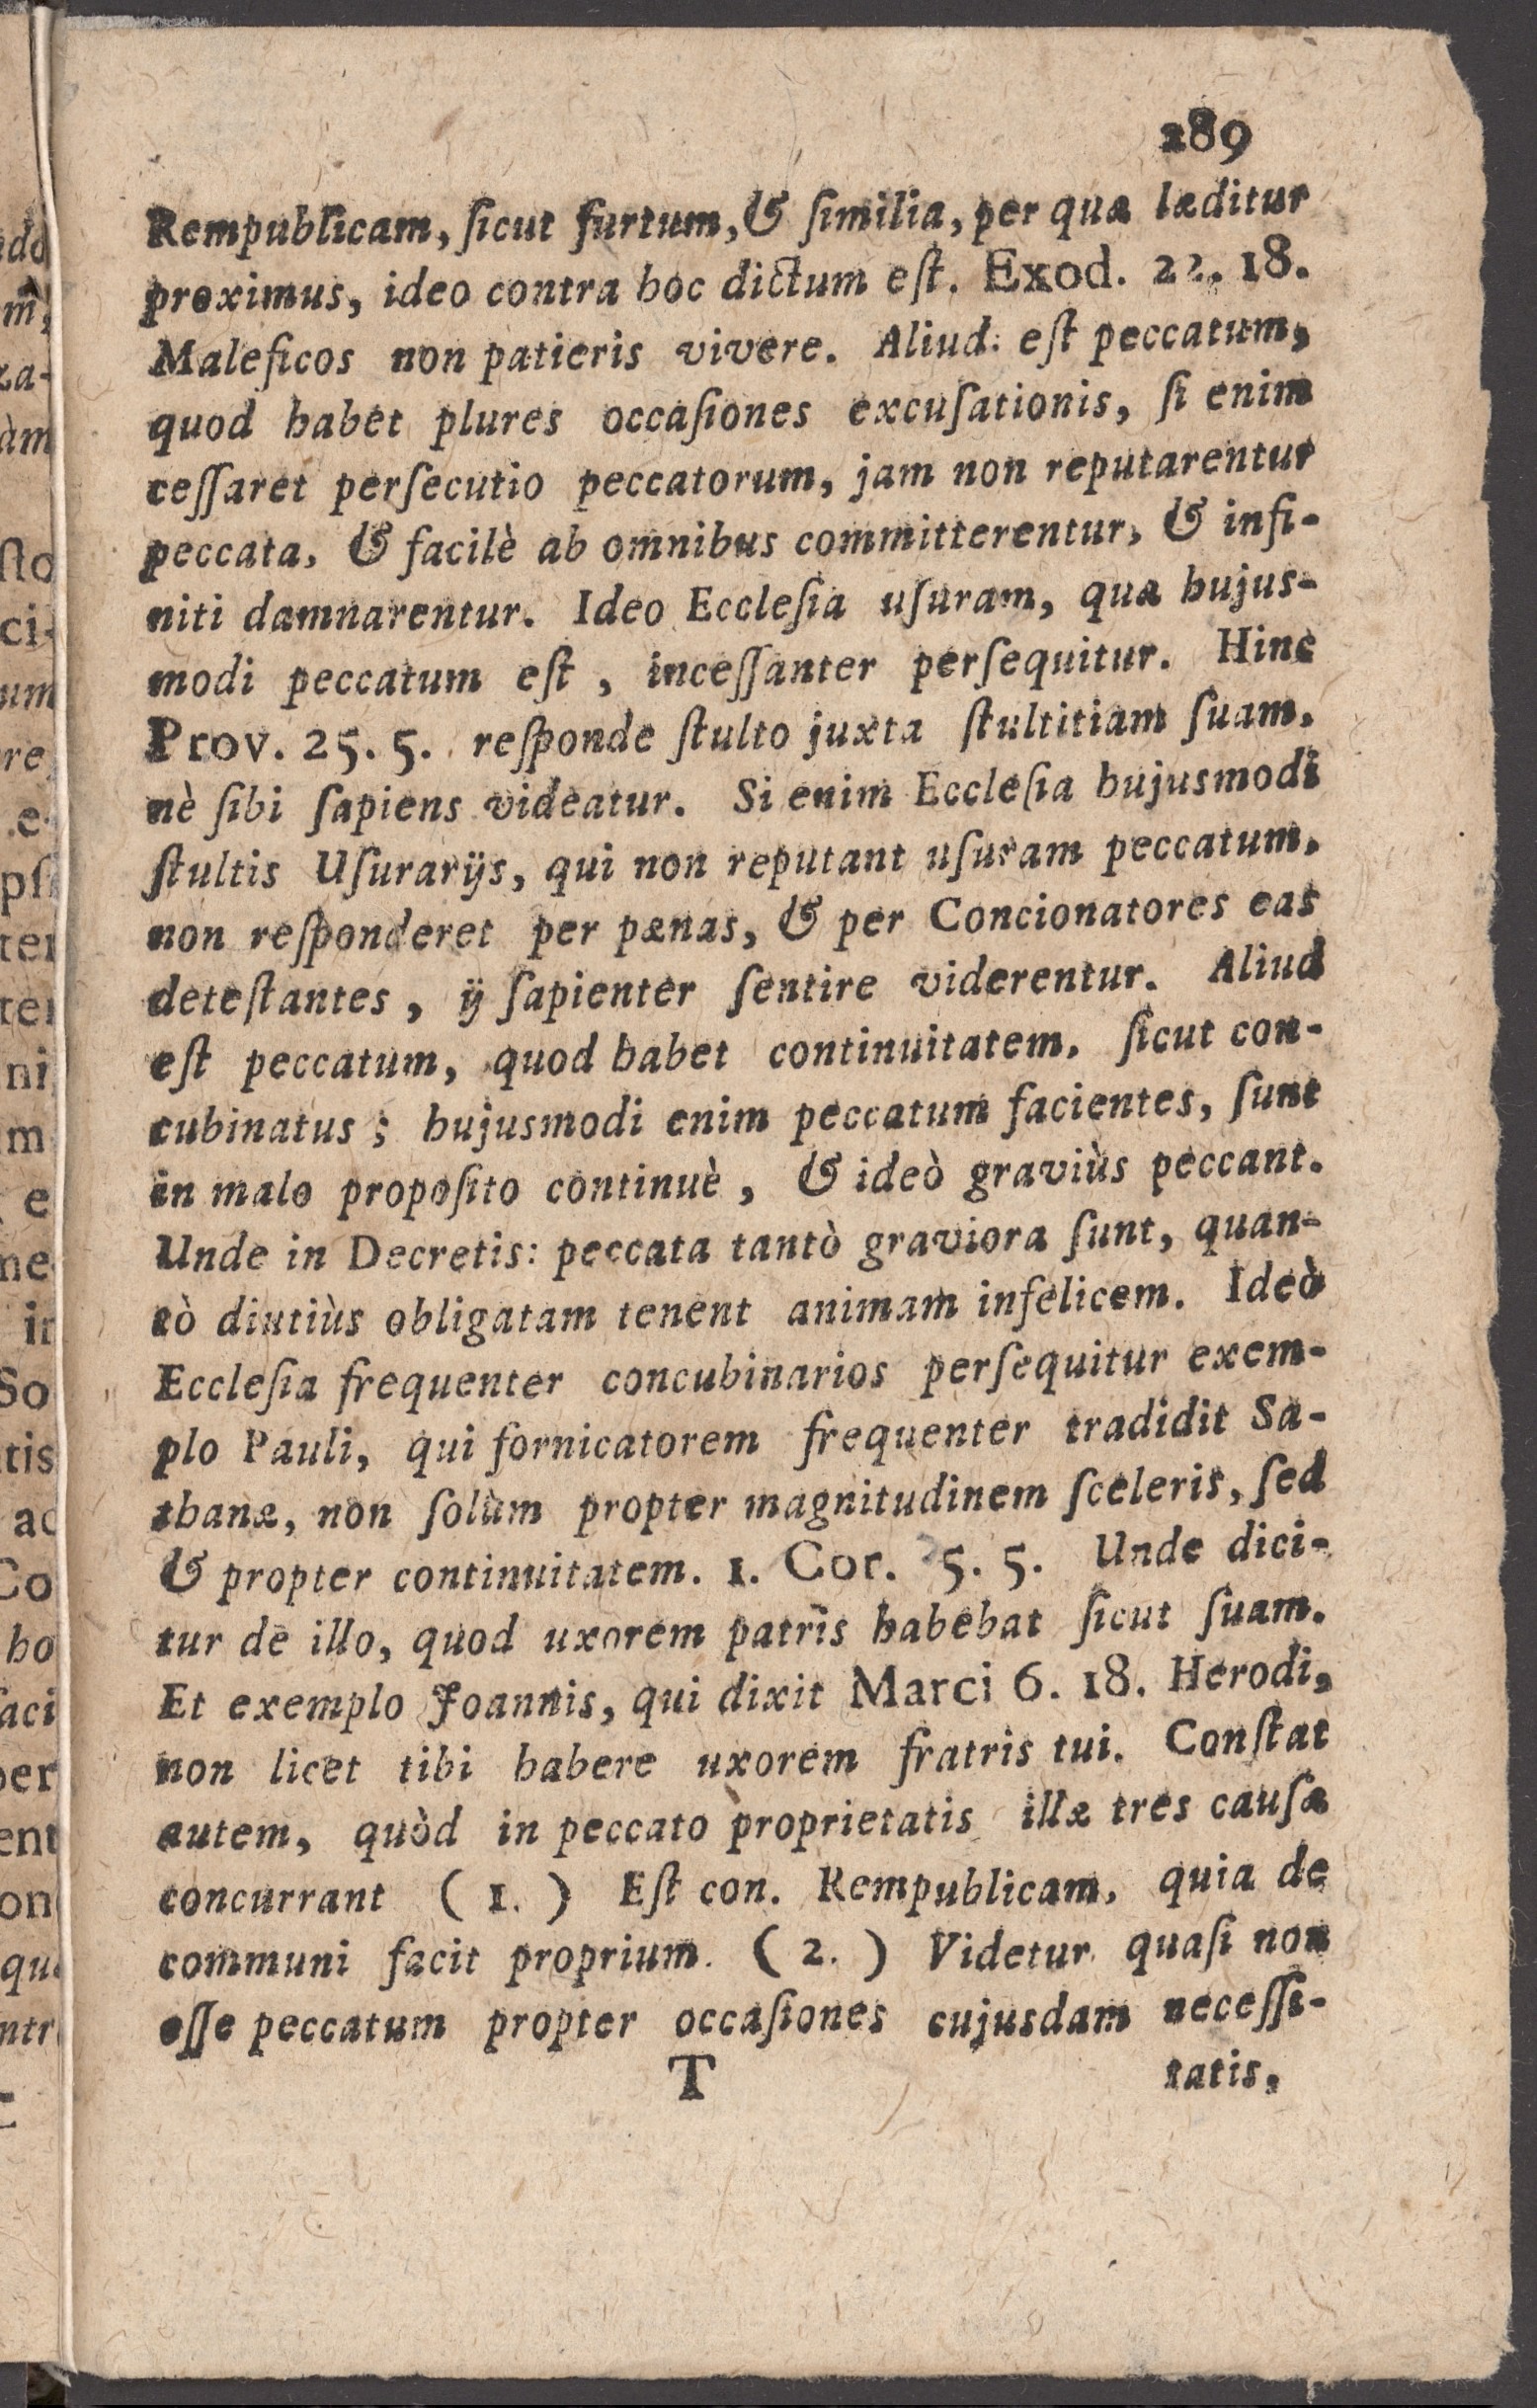 289
Rempublicam, ſicut furtum, & ſimilia, per quæ læditur
proximus, ideo contra hoc dictum eſt. Exod. 22. 18.
Maleficos non patieris vivere. Aliud. eſt peccatum,
quod habet plures occaſiones excuſationis, ſi enim
ceſſaret perſecutio peccatorum, jam non reputarentur
peccata, & facilè ab omnibus committerentur, & infi-
niti damnarentur. Ideo Eccleſia uſuram, quæ hujus-
modi peccatum eſt, inceſſanter perſequitur. Hinc
Prov. 25. 5. reſponde ſtulto juxta ſtultitiam ſuam,
nè ſibi ſapiens videatur. Si enim Eccleſia hujusmodi
ſtultis Uſurarijs, qui non reputant uſuram peccatum,
non reſponderet per pænas, & per Concionatores eas
deteſtantes, ij ſapienter ſentire viderentur. Aliud
eſt peccatum, quod habet continuitatem, ſicut con-
cubinatus; hujusmodi enim peccatum facientes, ſunt
in malo propoſito continuè, & ideò graviùs peccant.
Unde in Decretis: peccata tantò graviora ſunt, quan-
tò diutiùs obligatam tenent animam infelicem. Ideò
Eccleſia frequenter concubinarios perſequitur exem-
plo Pauli, qui fornicatorem frequenter tradidit Sa-
thanæ, non ſolùm propter magnitudinem ſceleris, ſed
& propter continuitatem. 1. Cor. 5. 5. Unde dici-
tur de illo, quod uxorem patris habebat ſicut ſuam.
Et exemplo Joannis, qui dixit Marci 6. 18. Herodi,
non licet tibi habere uxorem fratris tui. Conſtat
autem, quòd in peccato proprietatis illæ tres cauſæ
concurrant (1.) Eſt con. Rempublicam, quia de
communi facit proprium. (2.) Videtur quaſi non
eſſe peccatum propter occaſiones cujusdam neceſſi-
T tatis,